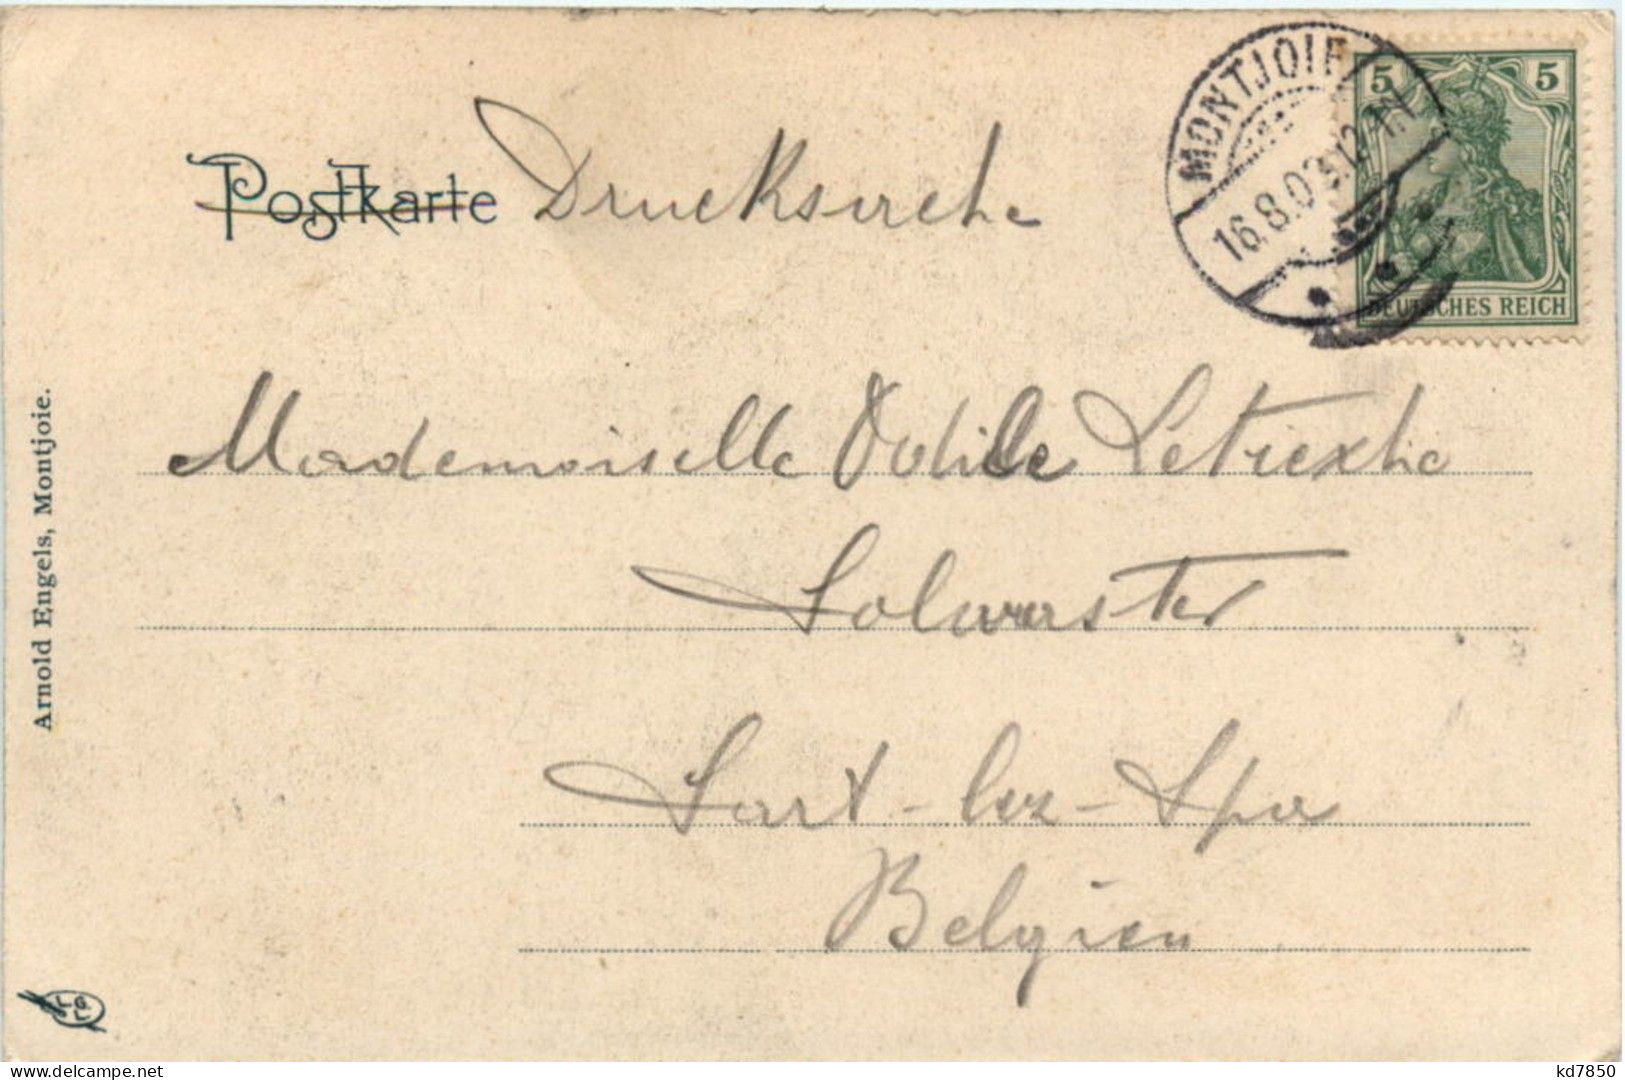 Postkarte Drucksache
MONTJOIE
16.8.03.12-1N
5 5
DEUTSCHES REICH
Mademoiselle Odile Letrexhe
Solwaster
Sart-lez-Spa
Belgien
Arnold Engels, Montjoie.
L G L
kd7850